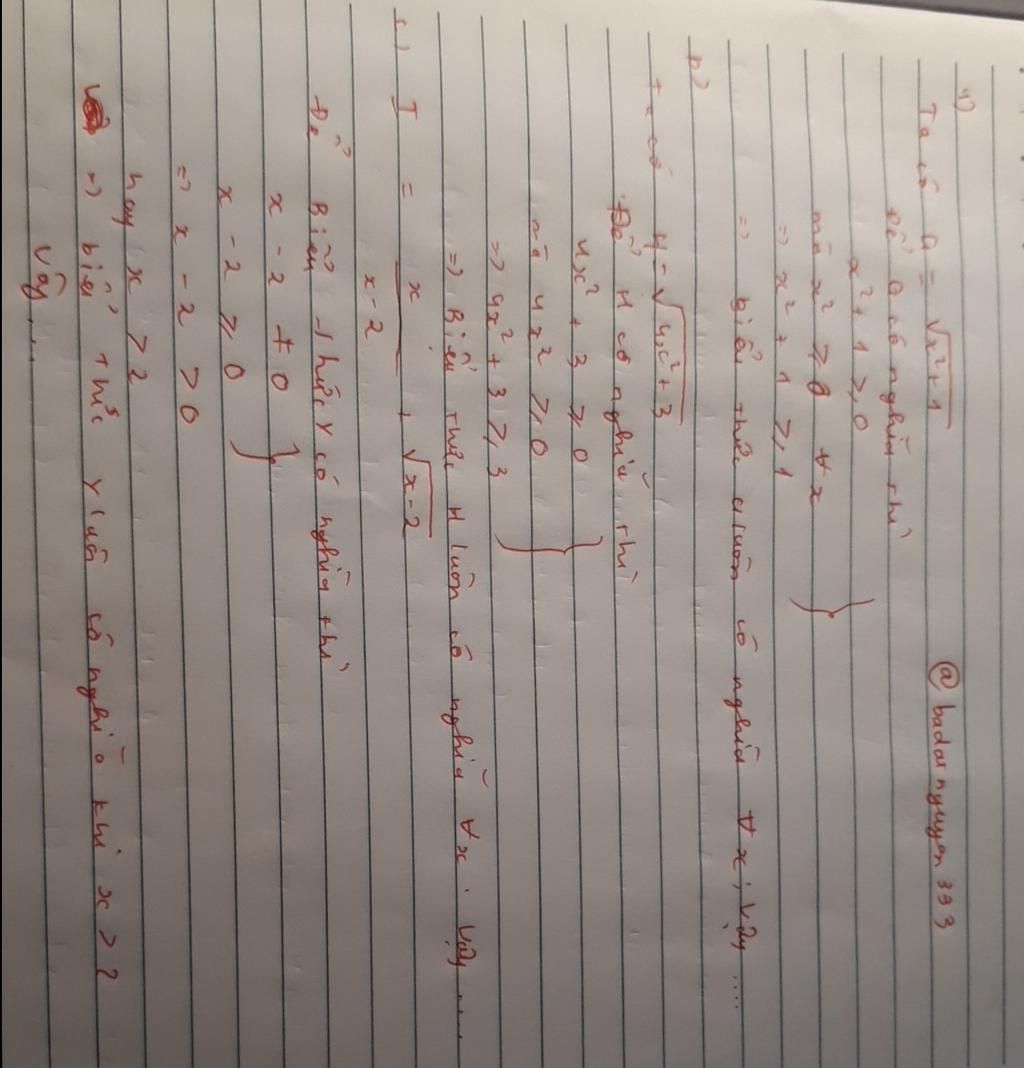 a) @badainguyen393
Ta có G = √x²+1
Để G có nghĩa thì
x² + 1 ≥ 0
mà x² ≥ 0 ∀x
=> x² + 1 ≥ 1
=> biểu thức G luôn có nghĩa ∀x ; Vậy .....
b)
Ta có H = √4x²+3
Để H có nghĩa thì
4x² + 3 ≥ 0
mà 4x² ≥ 0
=> 4x² + 3 ≥ 3
=> Biểu thức H luôn có nghĩa ∀x . Vậy .....
c) I = x/x-2 + √x-2
Để Biểu thức Y có nghĩa thì
x - 2 ≠ 0
x - 2 ≥ 0
=> x - 2 > 0
hay x > 2
=> biểu thức Y luôn có nghĩa khi x > 2
Vậy ....